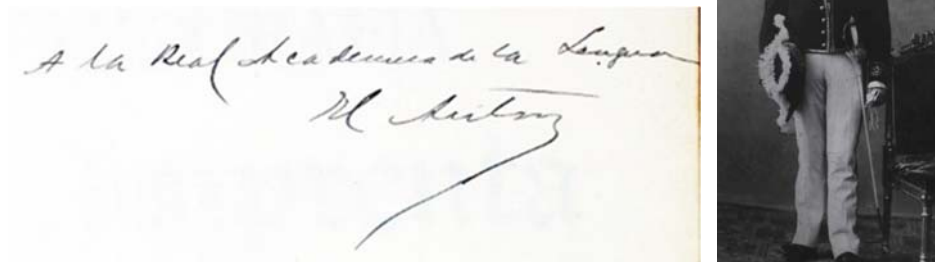 A la Real Academia de la Lengua
El Autor